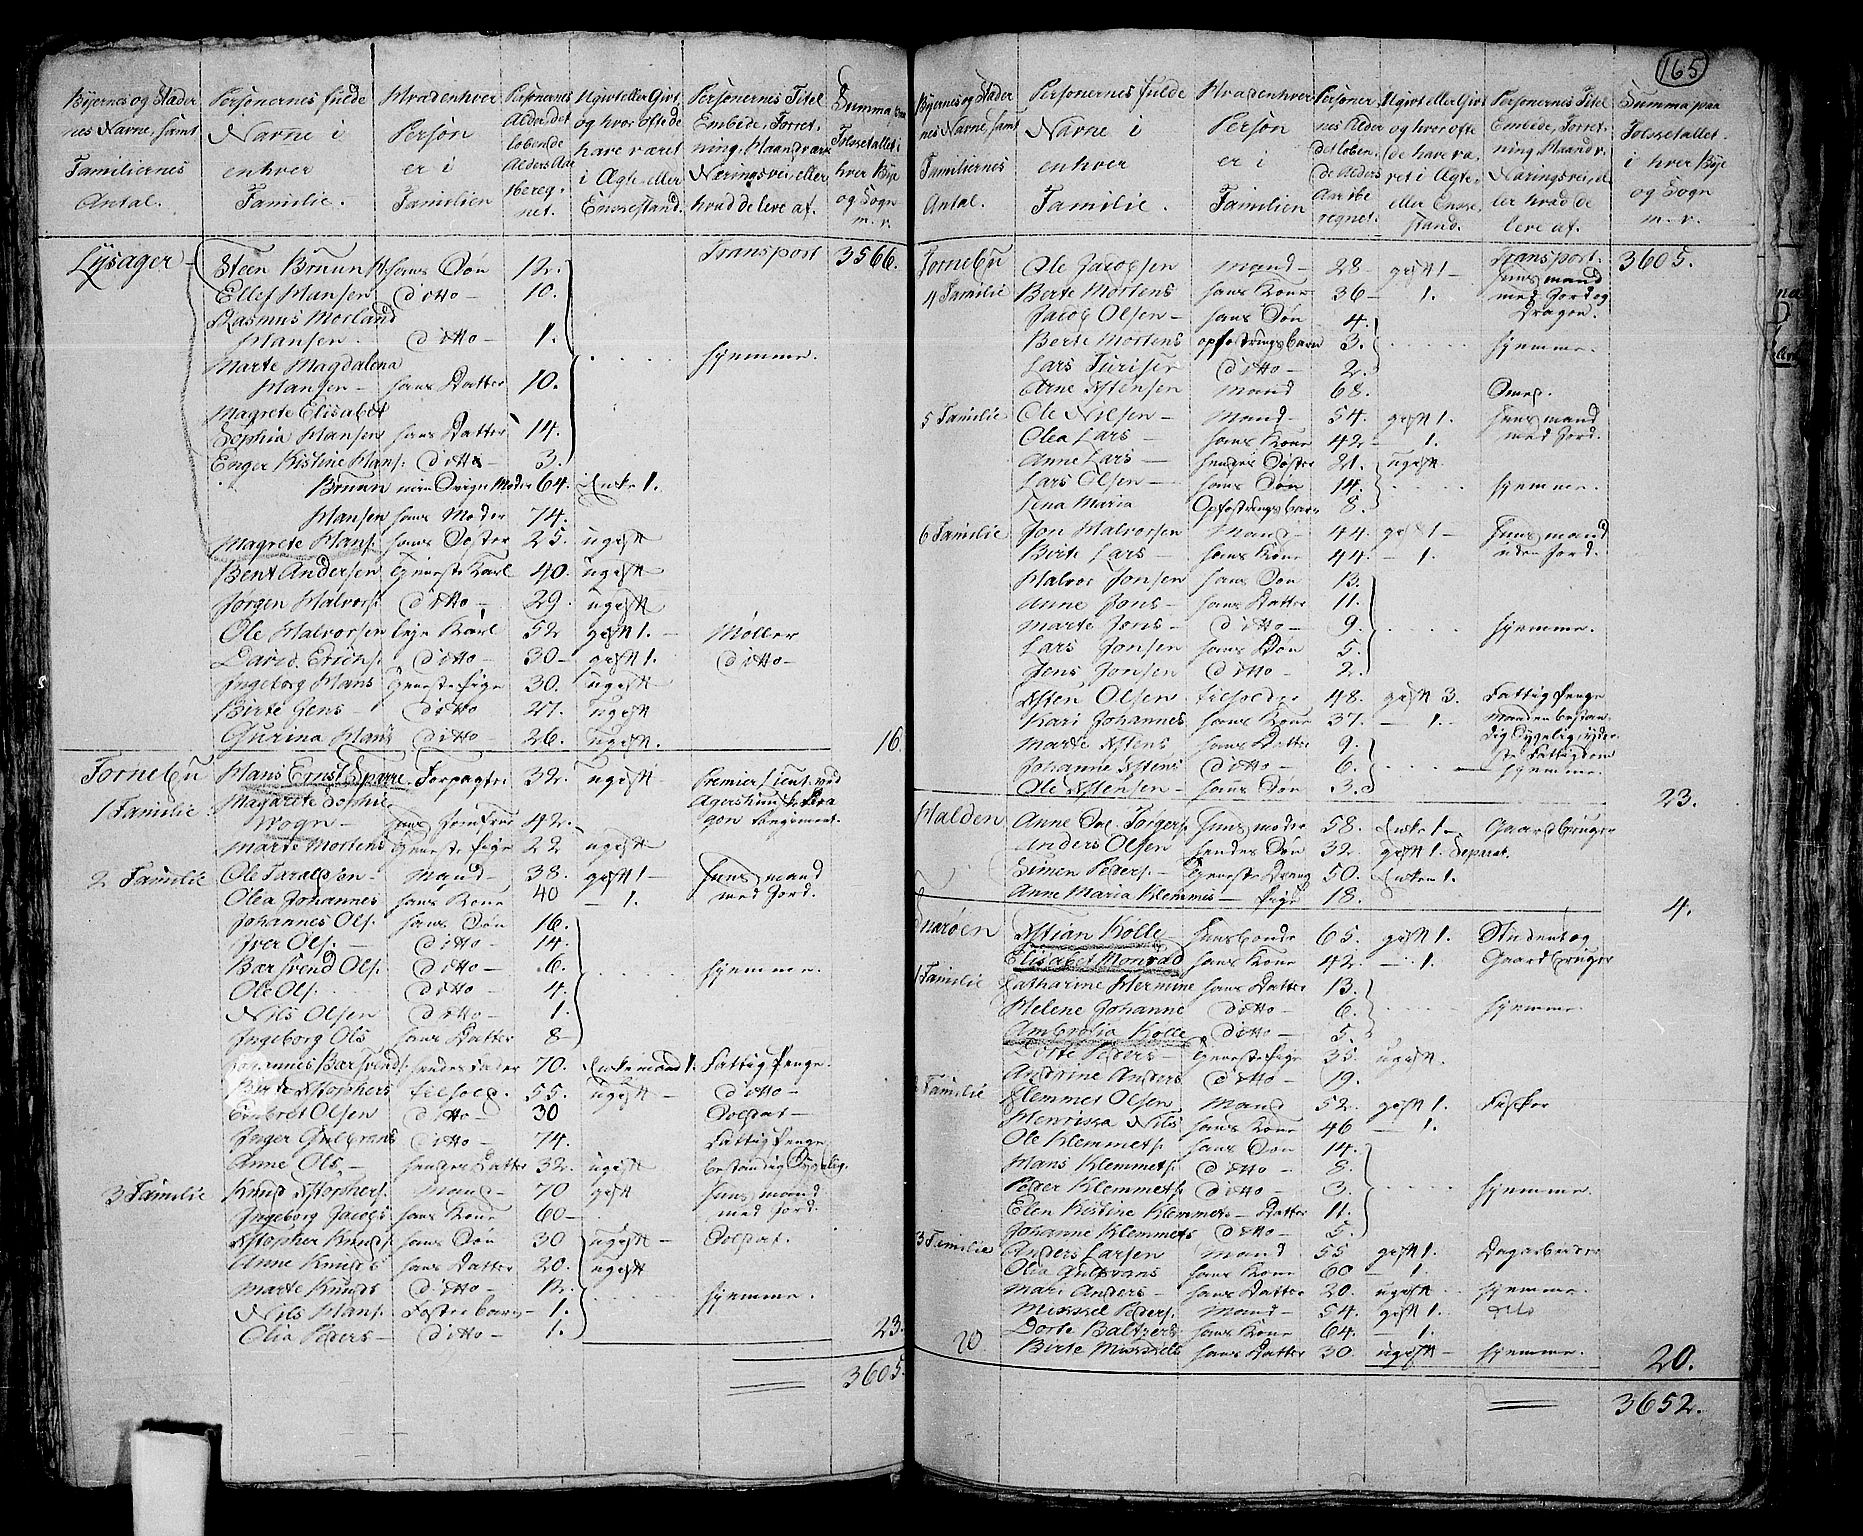 165
Byernes og Stæder
nes Navne, samt
Familiernes
Antal.
Personernes fulde
Navne i
enhver
Familie.
Hvad enhver
Person
er i
Familien
Personernes
Alder, det
løbende
Alders Aar
ibereg-
net.
Ugivt eller Givt
og hvor ofte de
have været
i Ægte- eller
Enkestand.
Personernes Titel
Embede, Forret-
ning, Haandværk
Næringsvei, eller
hvad de leve af.
Summa paa
Folketallet i
hver Bye
og Sogn
m. v.
Lysager Transport 3566.
Steen Bruun H. hans Søn 12.
Ellef Hansen ditto 10.
Rasmus Morland
Hansen. ditto 1.
Marte Magdalena hjemme.
Hansen hans Datter 10.
Magrete Elisabet
Sophia Hansen hans Datter 14.
Enger Kistine Hans: ditto 3.
Bruun min Svigr Moder 64. Enke 1.
Hansen hans Moder 74.
Magrete Hans: hans Søster 25. ugift
Bent Andersen tjeneste Karl 40. ugift
Jørgen Halvors: ditto 29. ugift
Ole Halvorsen leje Karl 52 gift 1. Møller
David Erichs: ditto 30 gift 1. ditto
Ingeborg Hans tjeneste Pige 30. ugift
Birte Jens ditto 27. ugift
Gurina Hans ditto 26. ugift. 16.
Fornebu Hans Ernst Sparre Forpagter 32. ugift Premier Lieut. ved
1 Familie Magarete Sophie Agershuus Dra
Wogn Jomfrue 42. gon Regiment.
Marte Mortens tjeneste Pige 22 ugift
2 Familie Ole Taralssen Mand 38. gift 1 Huusmand
Olea Johannes hans Kone 40 1. med Jord.
Johannes Ols: hans Søn 16.
Iver Ols: ditto 14.
Bærsvend Ols: ditto 6. hjemme.
Ole Ols: ditto 4.
Nils Olsen ditto 1.
Ingeborg Ols hans Datter 8
Johannes Bærsvends: hendes Fader 70. Enkemand 1. Fattig Penge.
Birte Kstophers tilhold. 55. ugift ditto
Engebret Olsen ditto 30 Soldat
Inger Gulbrans ditto 74. Fattig Penge
Anne Ols hendes Datter 32. ugift bestandig Sygelig.
3 Familie Knud Kstophers: Mand 70 gift Huusmand
Ingeborg Jacobs hans Kone 60 med Jord.
Kstopher Knuds: hans Søn 30 ugift Soldat.
Anne Knuds hans Datter 20. ugift
Marte Knuds ditto 12. hjemme.
Nils Hans: Foster barn 1.
Olia Peders ditto 1. 23.
3605.
Byernes og Stæder
nes Navne, samt
Familiernes
Antal.
Personernes fulde
Navne i
enhver
Familie.
Hvad enhver
Person
er i
Familien
Personer
nes Alder
det løben-
de Alders
Aar ibe
regnet.
Ugivt eller Givt
og hvor ofte
de have væ
ret i Ægte-
eller Enke-
stand.
Personernes Titel
Embede, Forret-
ning, Haandv:
Næringsvei, el
ler hvad de
leve af.
Summa paa
Folketallet
i hver Bye
og Sogn
m. v.
Fornebu Transport. 3605.
Ole Jacobsen Mand 28 gift 1 Huusmand
4 Familie Berte Mortens hans Kone 36 1. med Jord og
Jacob Olsen hans Søn 4. Dragon.
Berte Mortens opfostrings barn 3. hjemme.
Lars Turiser ditto 2.
Arne Kstensen Mand 68. Smed.
5 Familie Ole Nilsen Mand 54. gift 1. Huusmand
Olea Lars hans Kone 42 1. med Jord.
Anne Lars hendes Søster 21. ugift
Lars Olsen hans Søn 14. hjemme.
Lina Maria Opfostrings barn 8.
6 Familie Jon Halvorsen Mand 44. gift 1 Huusmand
Birte Lars hans Kone 44. 1. uden Jord.
Halvor Jonsen hans Søn 13.
Anne Jons hans Datter 11.
Marte Jons ditto 9. hjemme.
Lars Jonsen hans Søn 5.
Jens Jonsen ditto 2.
Ksten Olsen tilholder 48. gift 3. Fattig Penge
Kari Johannes hans Kone 37. 1. Manden bestan
Marte Kstens hans Datter 9. dig Sygelig yder
Johanne Kstens ditto 6. ste Fattigdom
hjemme.
Ole Kstensen hans Søn 3. 23.
Halden Anne Sol. Torgers: Huusmoder 58. Enke 1 Gaardbruger
Anders Olsen hendes Søn 32. gift 1. Separat.
Simen Peders: tjeneste Dreng 50. Enkem 1.
Anne Maria Klemmets Pige 18. 4.
Snarøen Kstian Kolle Huusbonde 65. gift 1. Student og
Elisabet Monrad hans Kone 42. 1. Gaardbruger
1 Familie Catharine Hermine hans Datter 13.
Helene Johanne ditto 6. hjemme.
Ambrosia Kolle ditto 5.
Dorte Peders tjeneste Pige 35. ugift.
Andrine Anders ditto 19.
2 Familie Klemmet Olsen Mand 52. gift 1. Fisker
Henrissa Nils hans Kone 46 1.
Ole Klemmets: hans Søn 14.
Hans Klemmets: ditto 8.
Peder Klemmets: ditto 3. hjemme.
Elen Kistine Klemmets Datter 11.
Johanne Klemmets ditto 5.
3 Familie Anders Larsen Mand 55 gift 1. Dagarbeider
Olia Gulbrans hans Kone 60 1.
Mari Anders hans Datter 20. ugift hjemme.
Mikkel Peders: Mand 54. gift 1. dito
Dorte Baltzers hans Kone 64. 1.
20 Birte Mikkels hans Datter 30 ugift hjemme. 20.
3652.